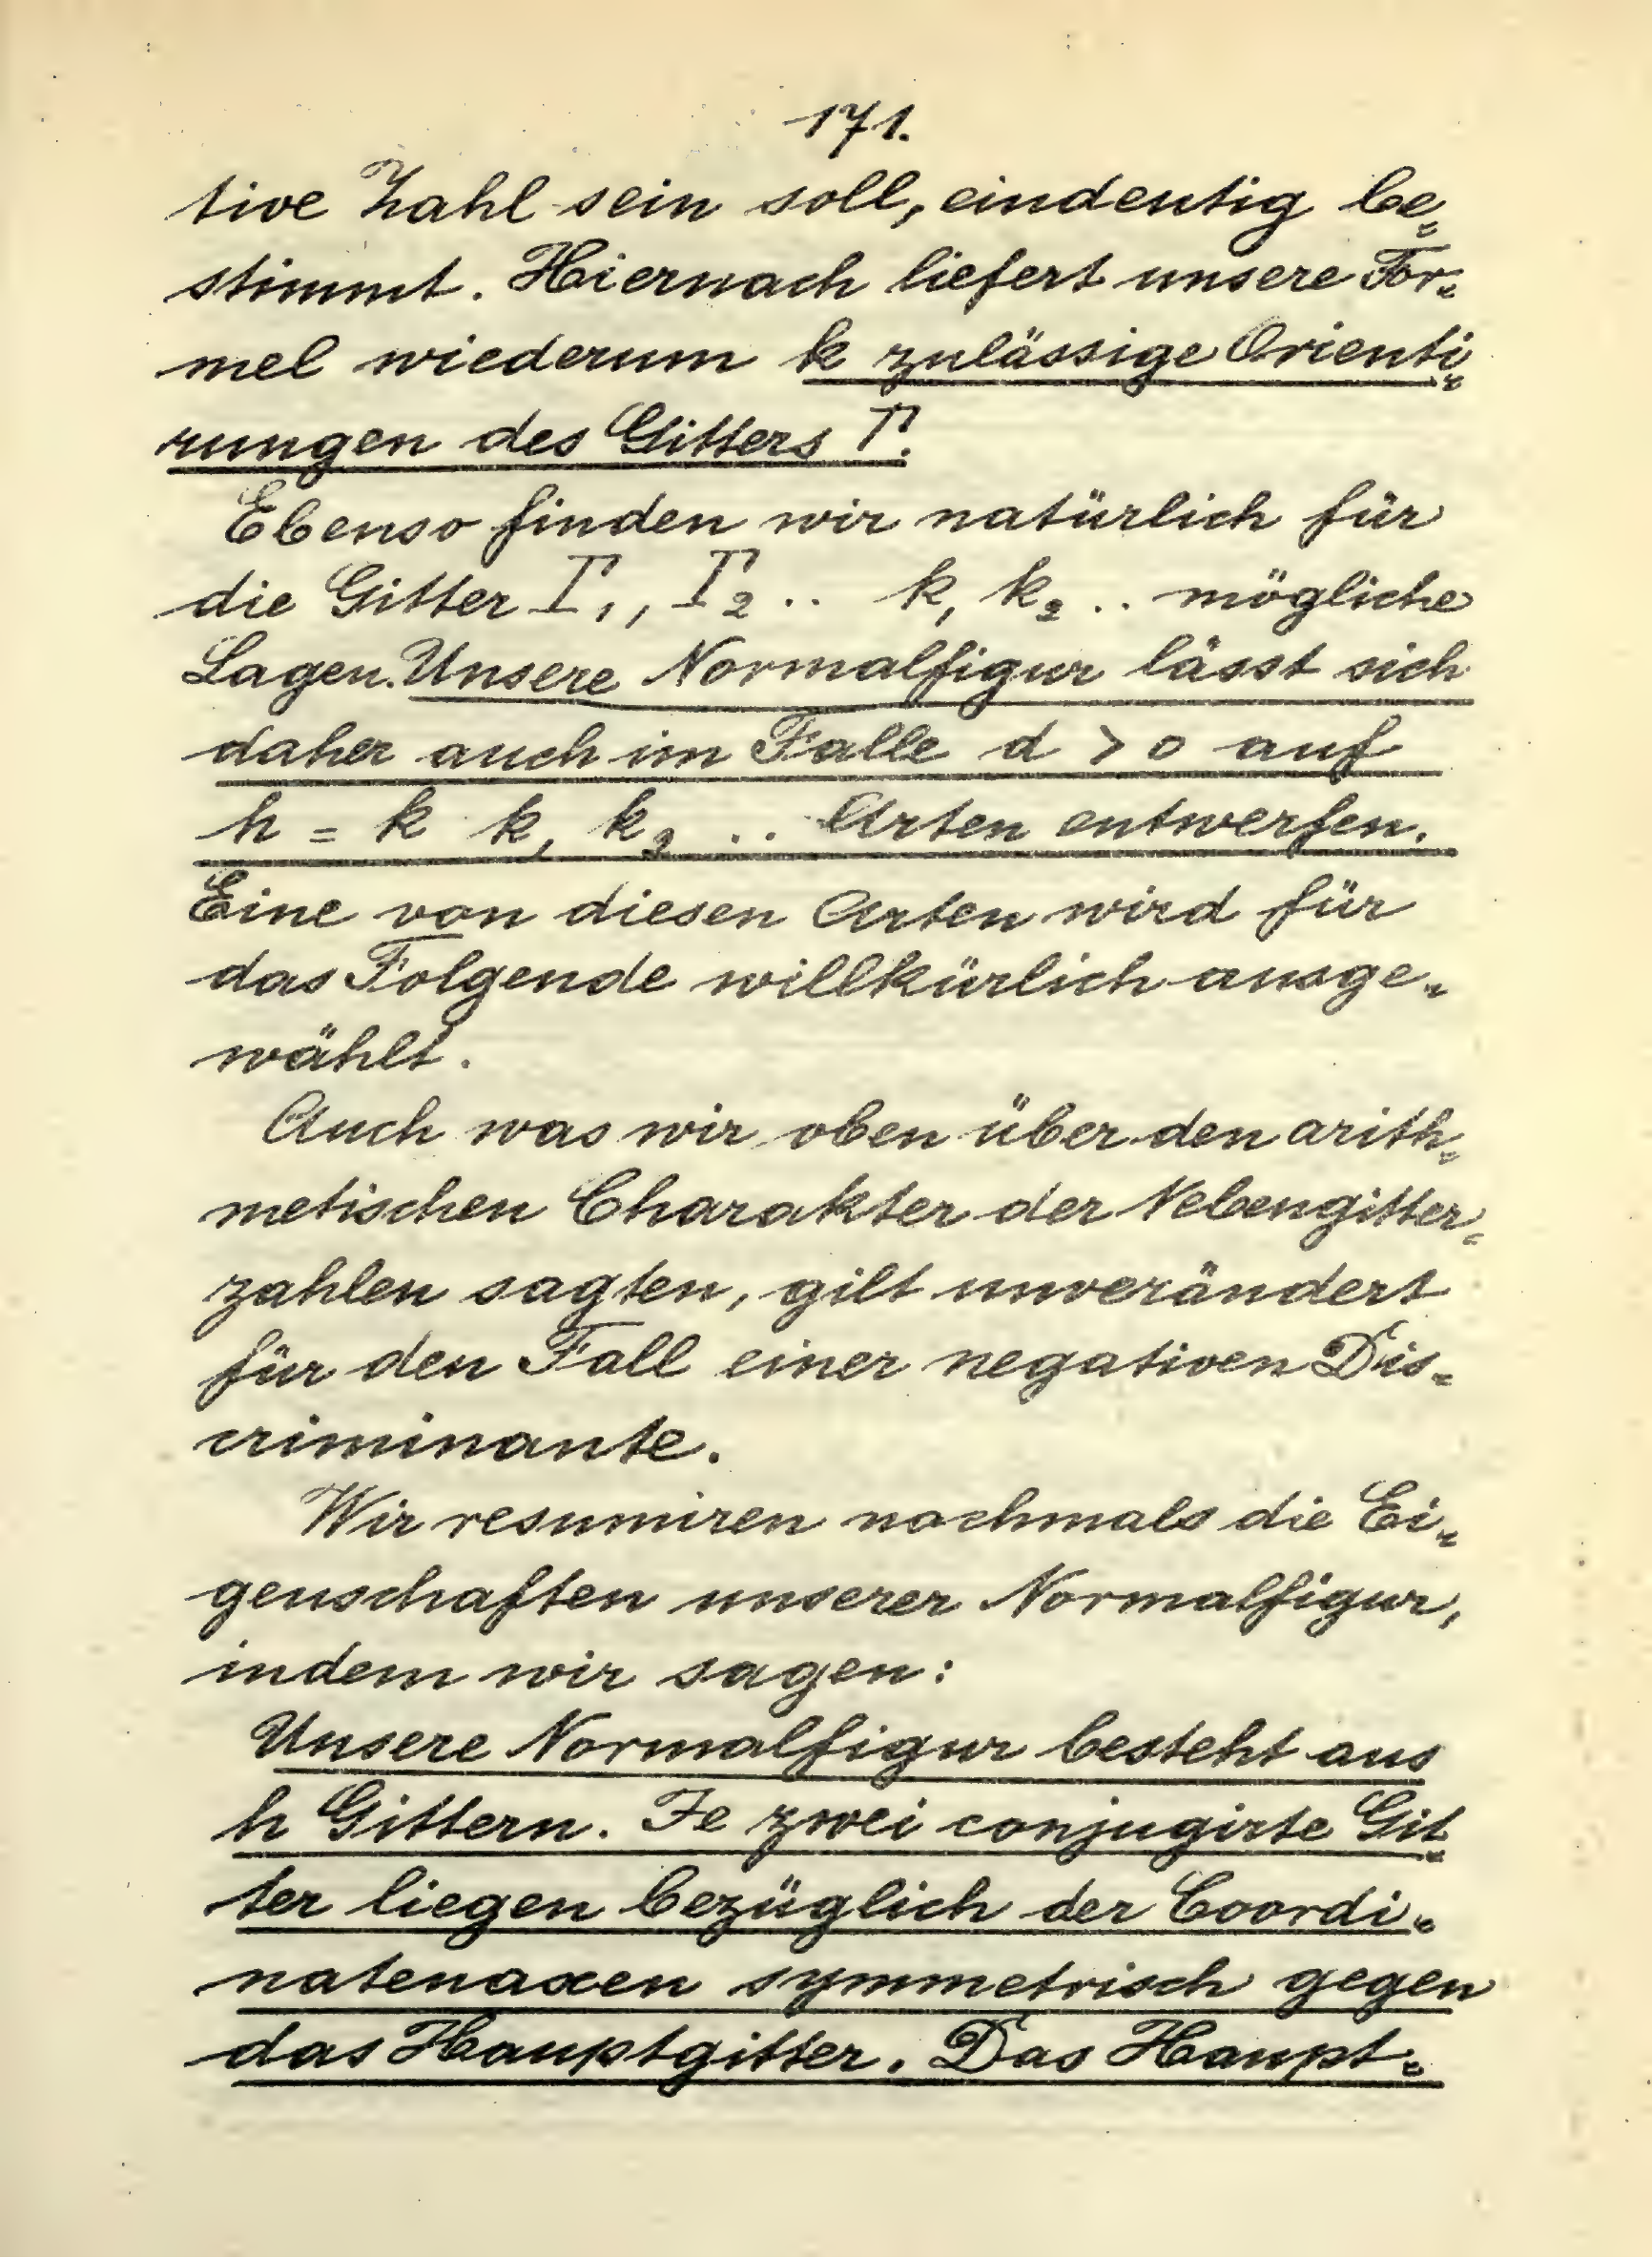 171.
tive Zahl sein soll, eindeutig be=
stimmt. Hiernach liefert unsere For=
mel wiederum k zulässige Orienti=
rungen des Gitters Γ.
Ebenso finden wir natürlich für
die Gitter Γ₁, Γ₂ .. k₁ k₂ .. mögliche
Lagen. Unsere Normalfigur lässt sich
daher auch im Falle d > 0 auf
h = k k₁ k₂ .. Arten entwerfen.
Eine von diesen Arten wird für
das Folgende willkürlich ausge=
wählt.
Auch was wir oben über den arith=
metischen Charakter der Nebengitter=
zahlen sagten, gilt unverändert
für den Fall einer negativen Dis=
criminante.
Wir resumiren nochmals die Ei=
genschaften unserer Normalfigur,
indem wir sagen:
Unsere Normalfigur besteht aus
h Gittern. Je zwei conjugirte Git=
ter liegen bezüglich der Coordi=
natenaxen symmetrisch gegen
das Hauptgitter. Das Haupt=